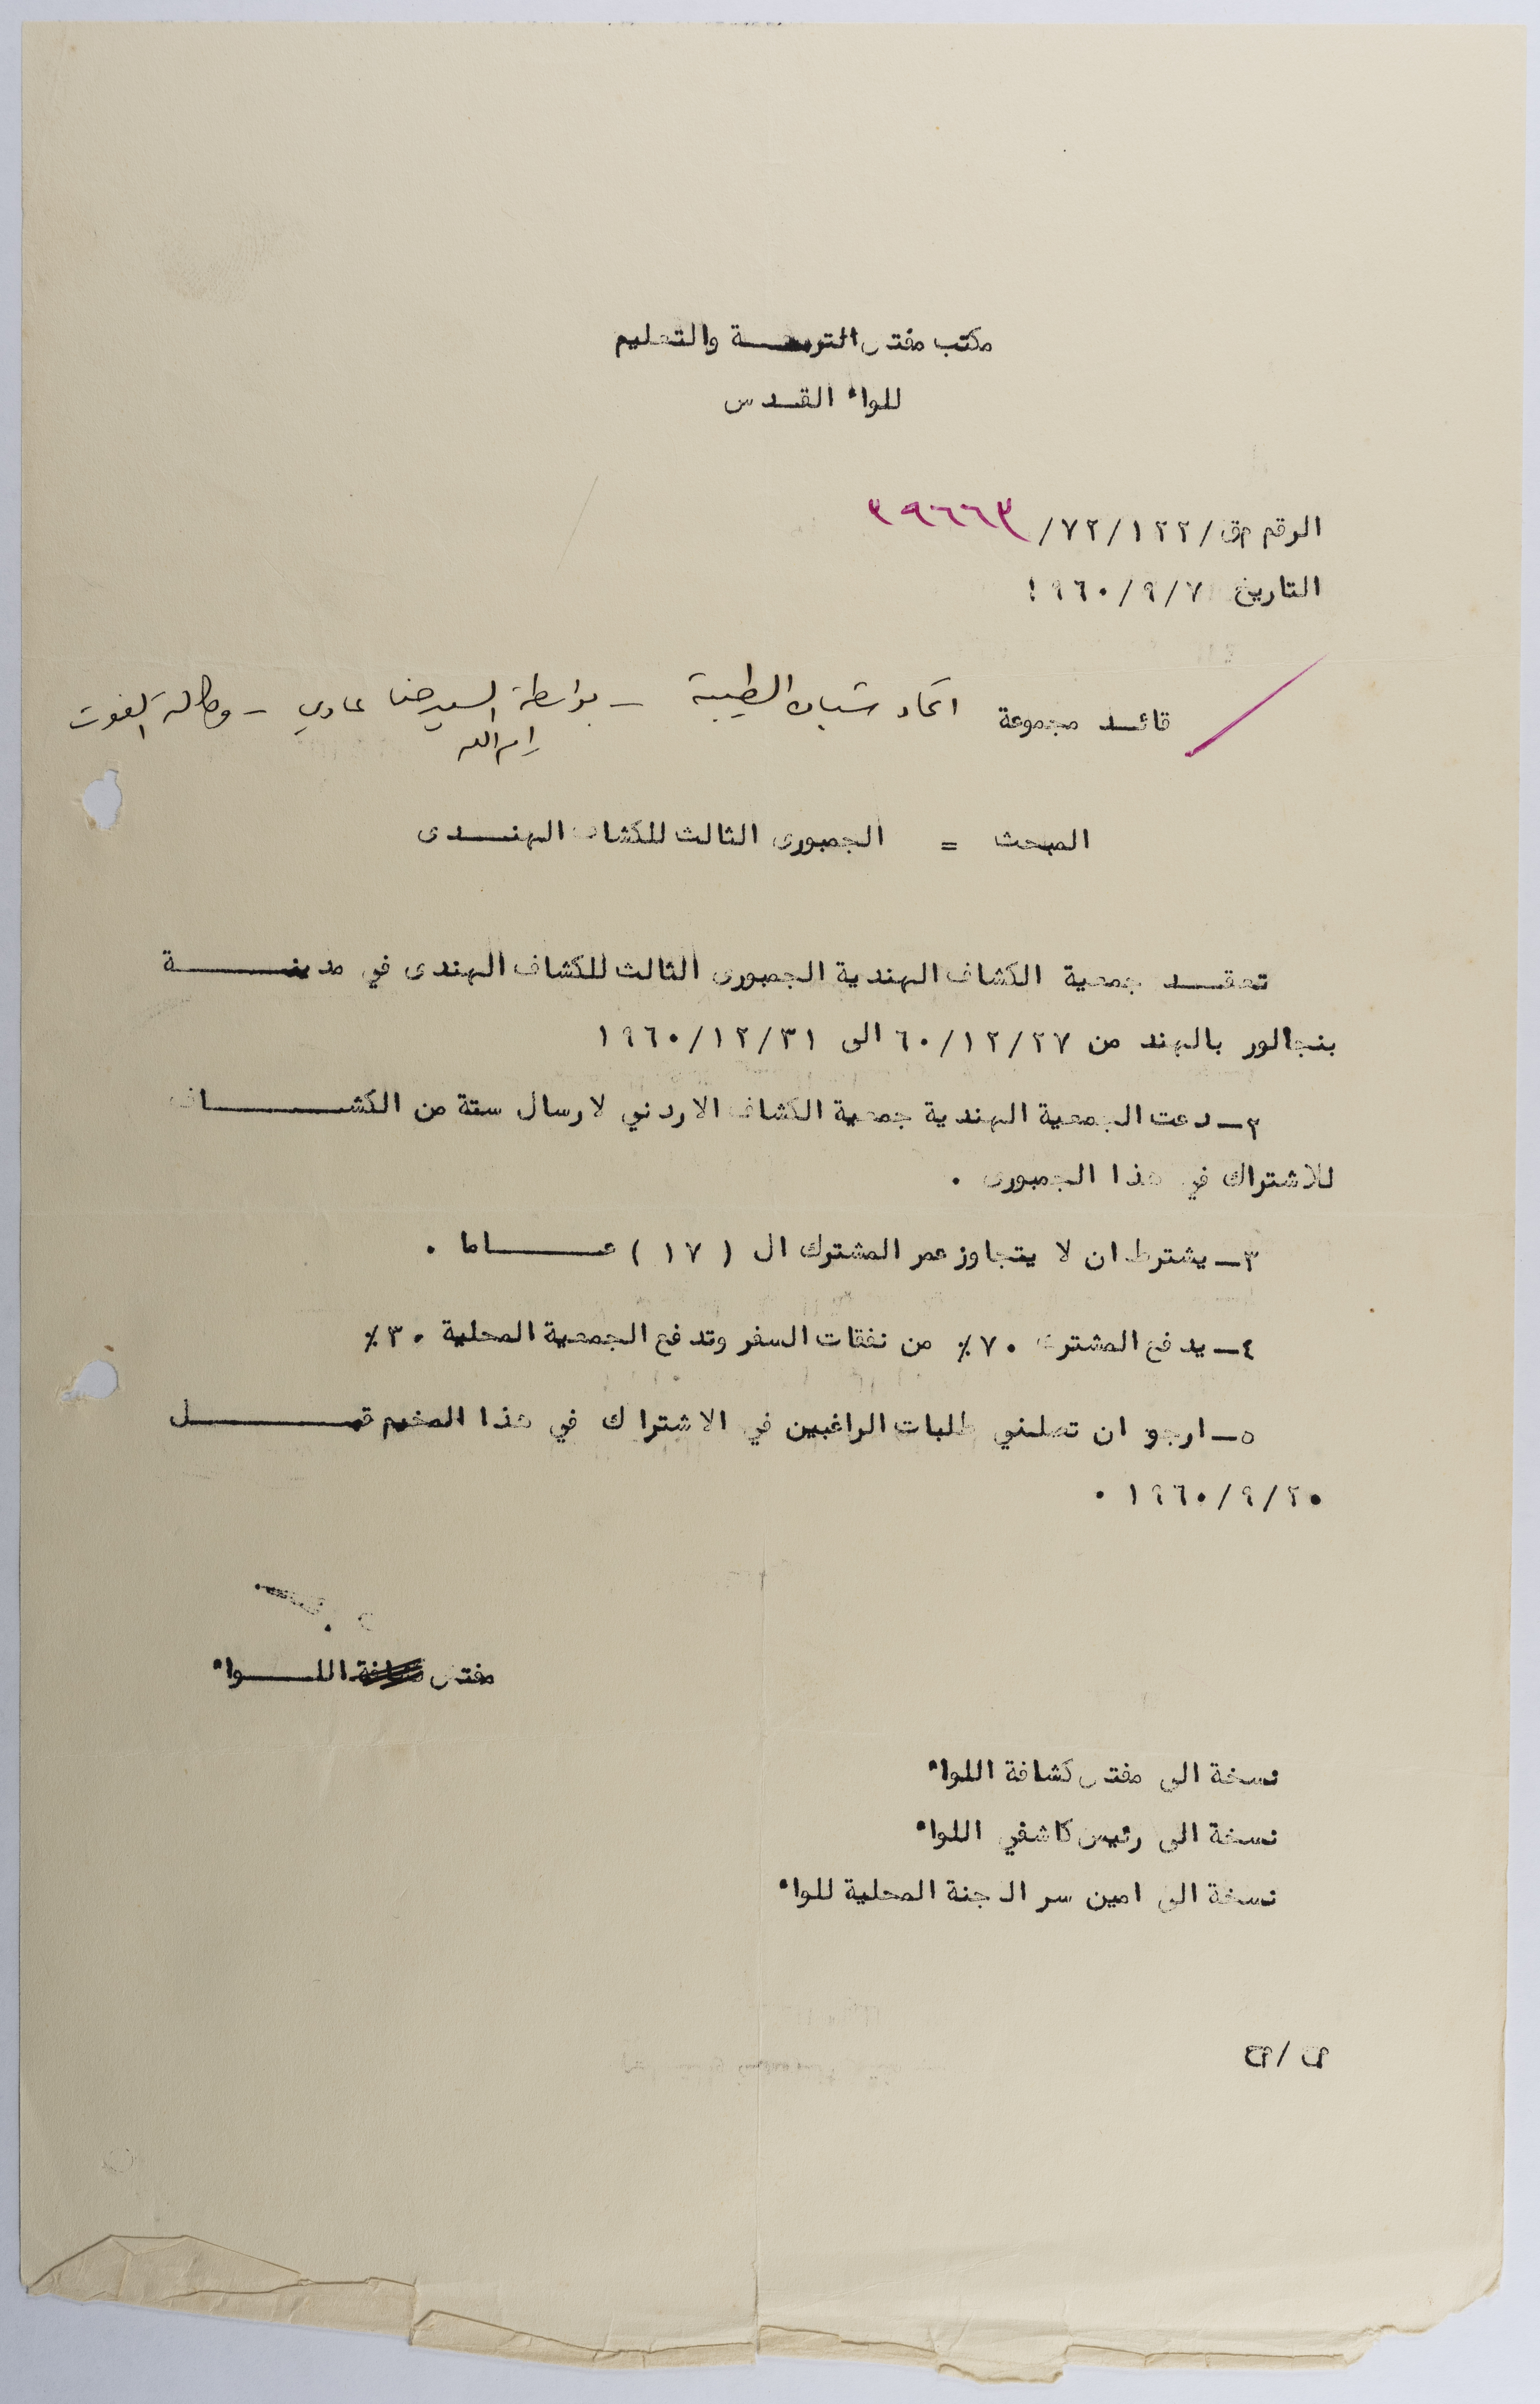 مكتب مفتش التربيـــة والتعليم
للواء القـدس
الرقم م ق/١٢٢/٧٢/ ٣٩٦٦٣
التاريخ ١٩٦٠/٩/٧
قائـد مجموعة اتحاد شبان الطيبة – بواسطة السيد حنا عمادي – وكالة الغوث
رام الله
المبحث = الجمبورى الثالث للكشاف الهنـــدى
تعقـد جمعية الكشاف الهندية الجمبورى الثالث للكشاف الهندى في مدينـــــــة
بنجالور بالهند من ٦٠/١٢/٢٧ الى ١٩٦٠/١٢/٣١
٢ـ دعت الجمعية الهندية جمعية الكشاف الاردني لارسال ستة من الكشــــــاف
للاشتراك في هذا الجمبورى ٠
٣ـ يشترط ان لا يتجاوز عمر المشترك ال ( ١٧ ) عــــــاما ٠
٤ـ يدفع المشترك ٧٠٪ من نفقات السفر وتدفع الجمعية المحلية ٣٠٪
٥ـ ارجو ان تصلني طلبات الراغبين في الاشتراك في هذا المخيم قبــــــــل
١٩٦٠/٩/٢٠ ٠
مفتش اللــــواء
نسخة الى مفتش كشافة اللواء
نسخة الى رئيس كاشفي اللواء
نسخة الى امين سر اللجنة المحلية للواء